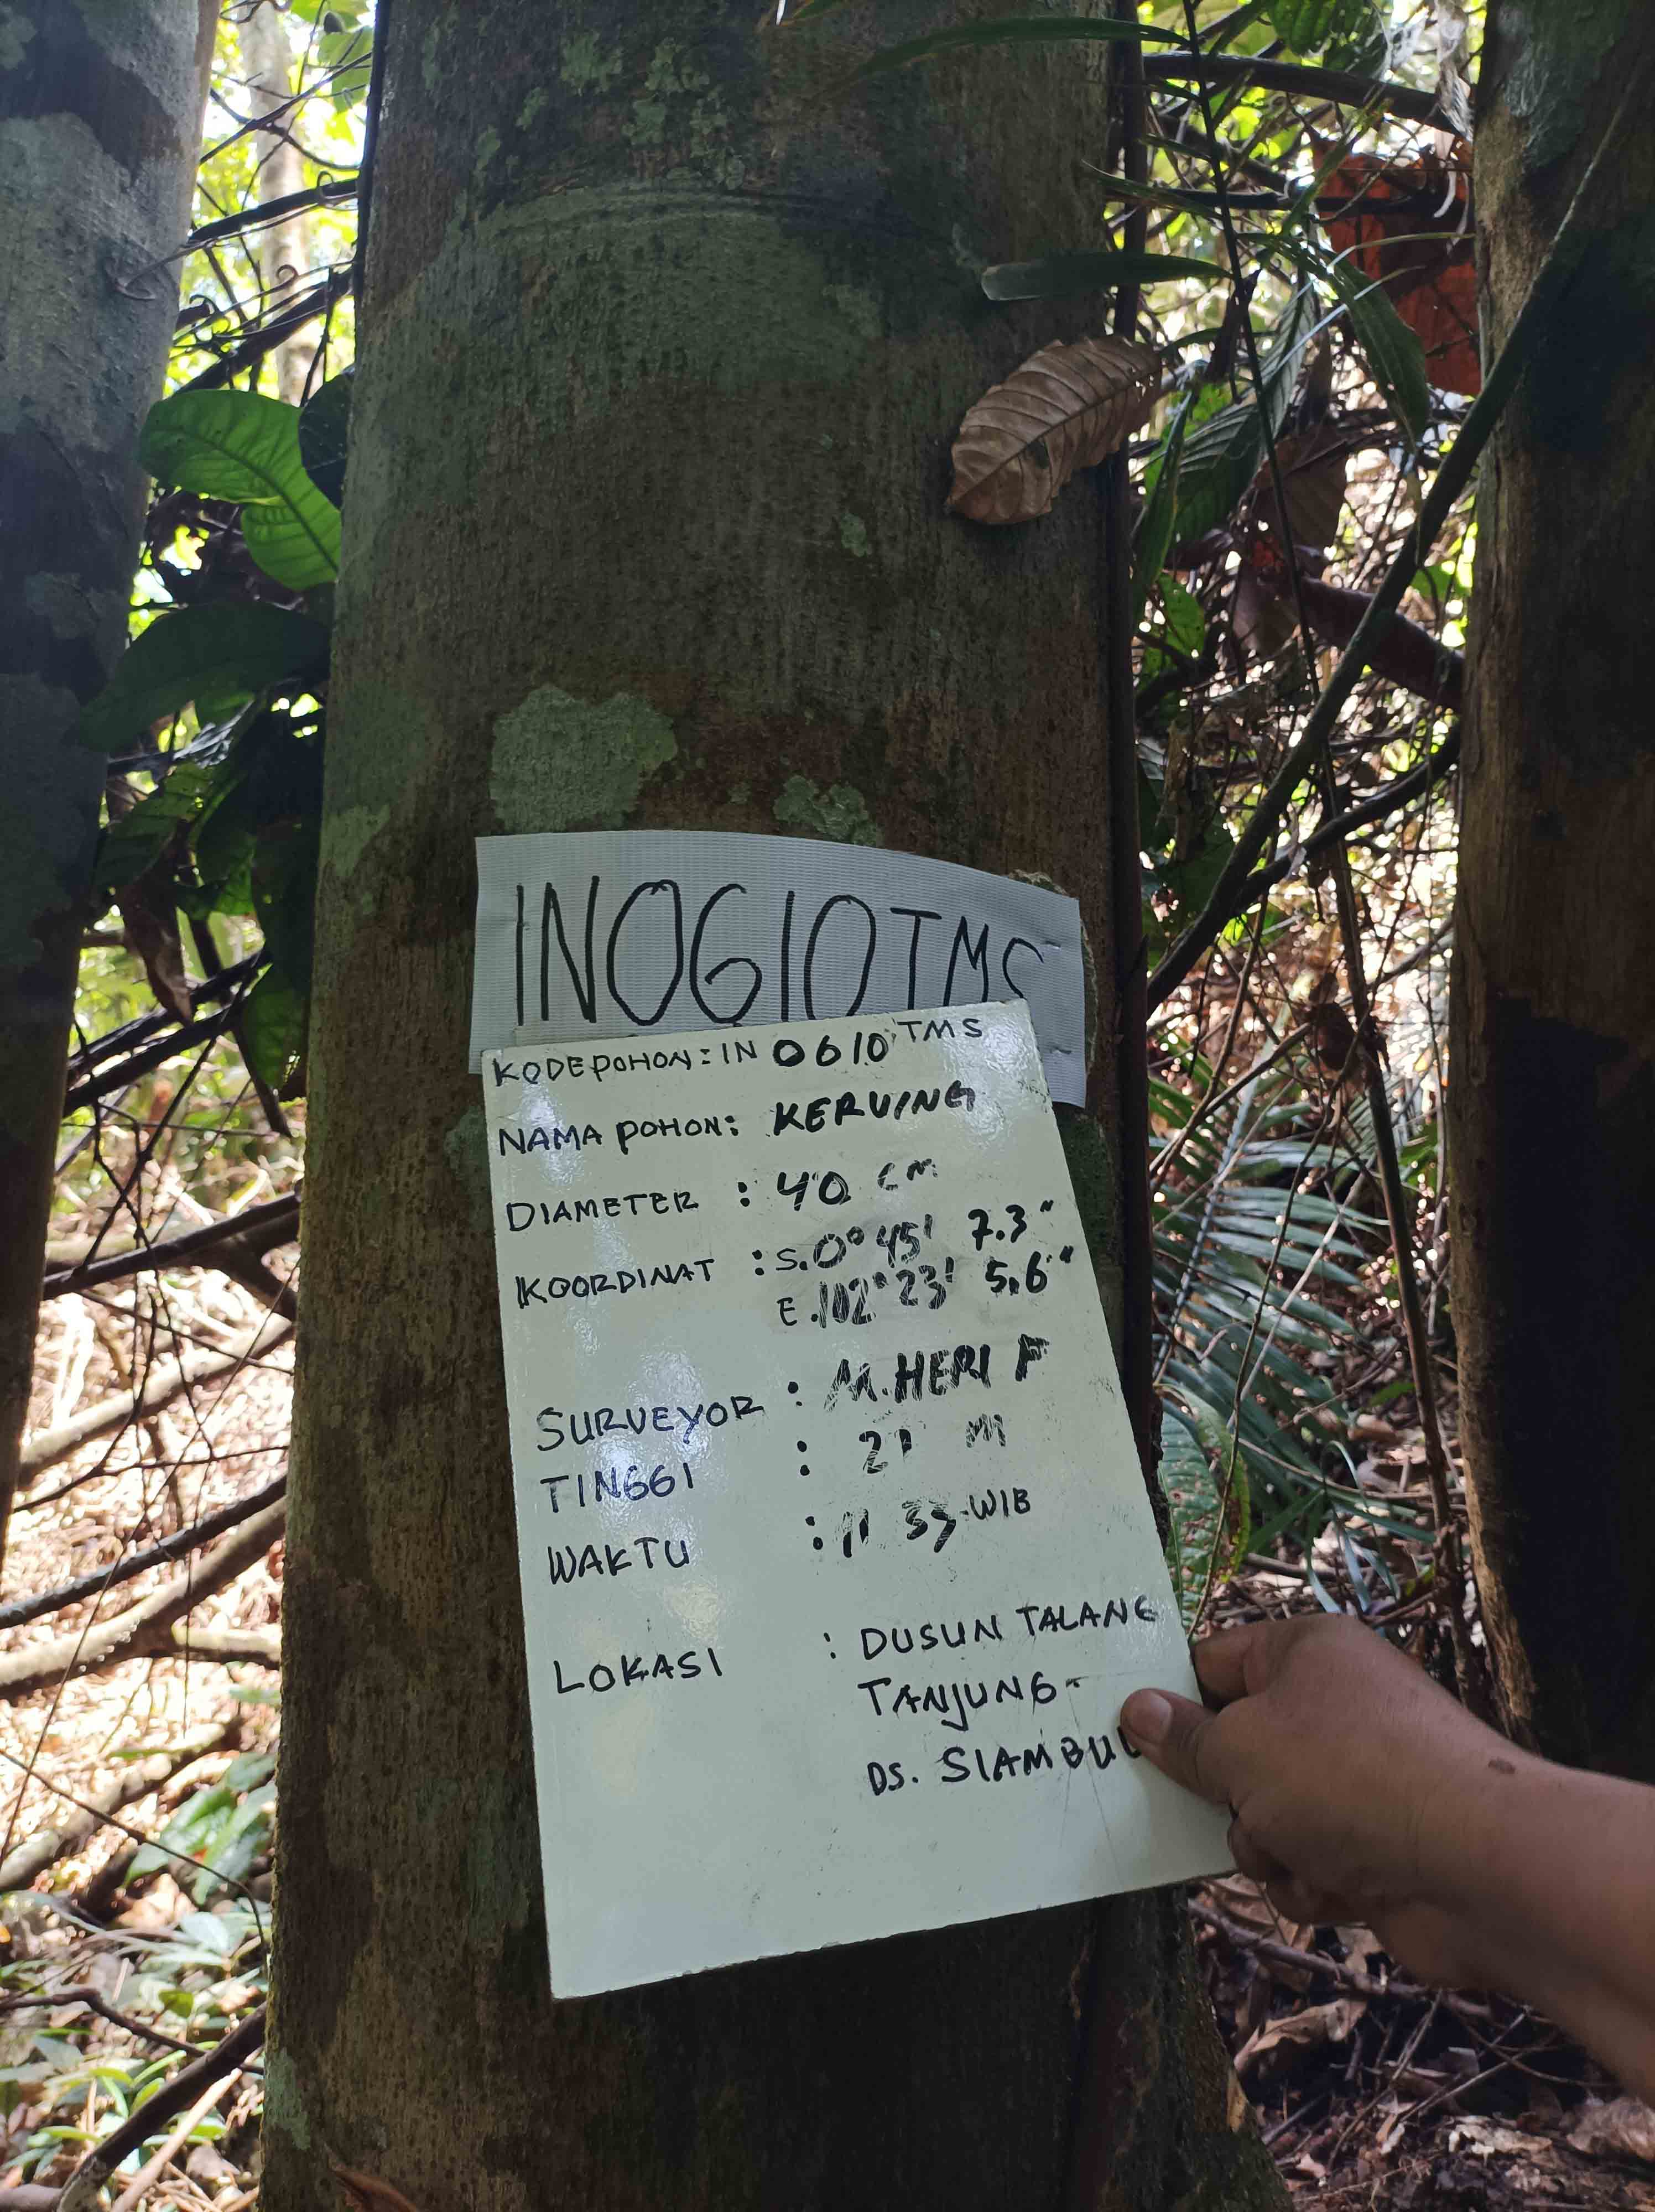 IN0610TMS
KODE POHON : IN 0610 TMS
NAMA POHON : KERUING
DIAMETER : 40 CM
KOORDINAT : S. 0° 45' 7.3"
E. 102° 23' 5.6"
SURVEYOR : M. HERI F
TINGGI : 21 M
WAKTU : 11 33 WIB
LOKASI : DUSUN TALANG
TANJUNG
DS. SIAMBUL